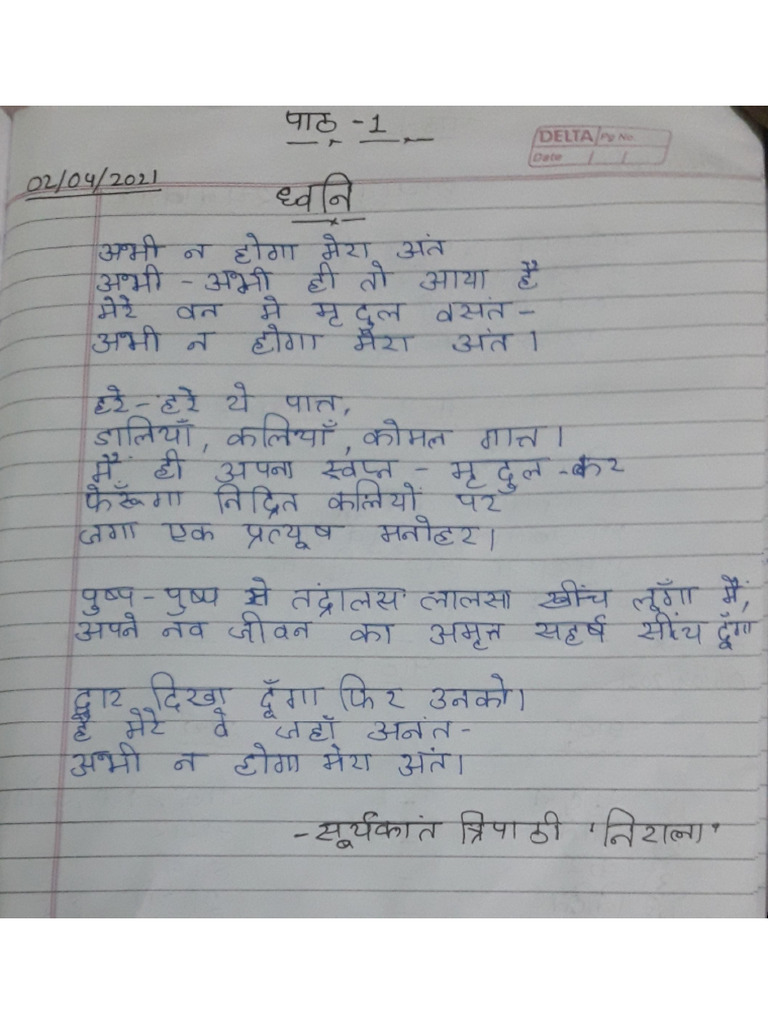 पाठ -1
DELTA Pg No.
Date
02/04/2021
ध्वनि
अभी न होगा मेरा अंत
अभी - अभी ही तो आया है
मेरे वन मे मृदुल वसंत-
अभी न होगा मेरा अंत।
हरे-हरे ये पात,
डालियाँ, कलियाँ, कोमल गात।
मैं ही अपना स्वप्न - मृदुल -कर
फेरूँगा निद्रित कलियों पर
जगा एक प्रत्यूष मनोहर।
पुष्प-पुष्प से तंद्रालस लालसा खींच लूँगा मैं,
अपने नव जीवन का अमृत सहर्ष सींच दूँगा
द्वार दिखा दूँगा फिर उनको।
हैं मेरे वे जहाँ अनंत-
अभी न होगा मेरा अंत।
-सूर्यकांत त्रिपाठी 'निराला'